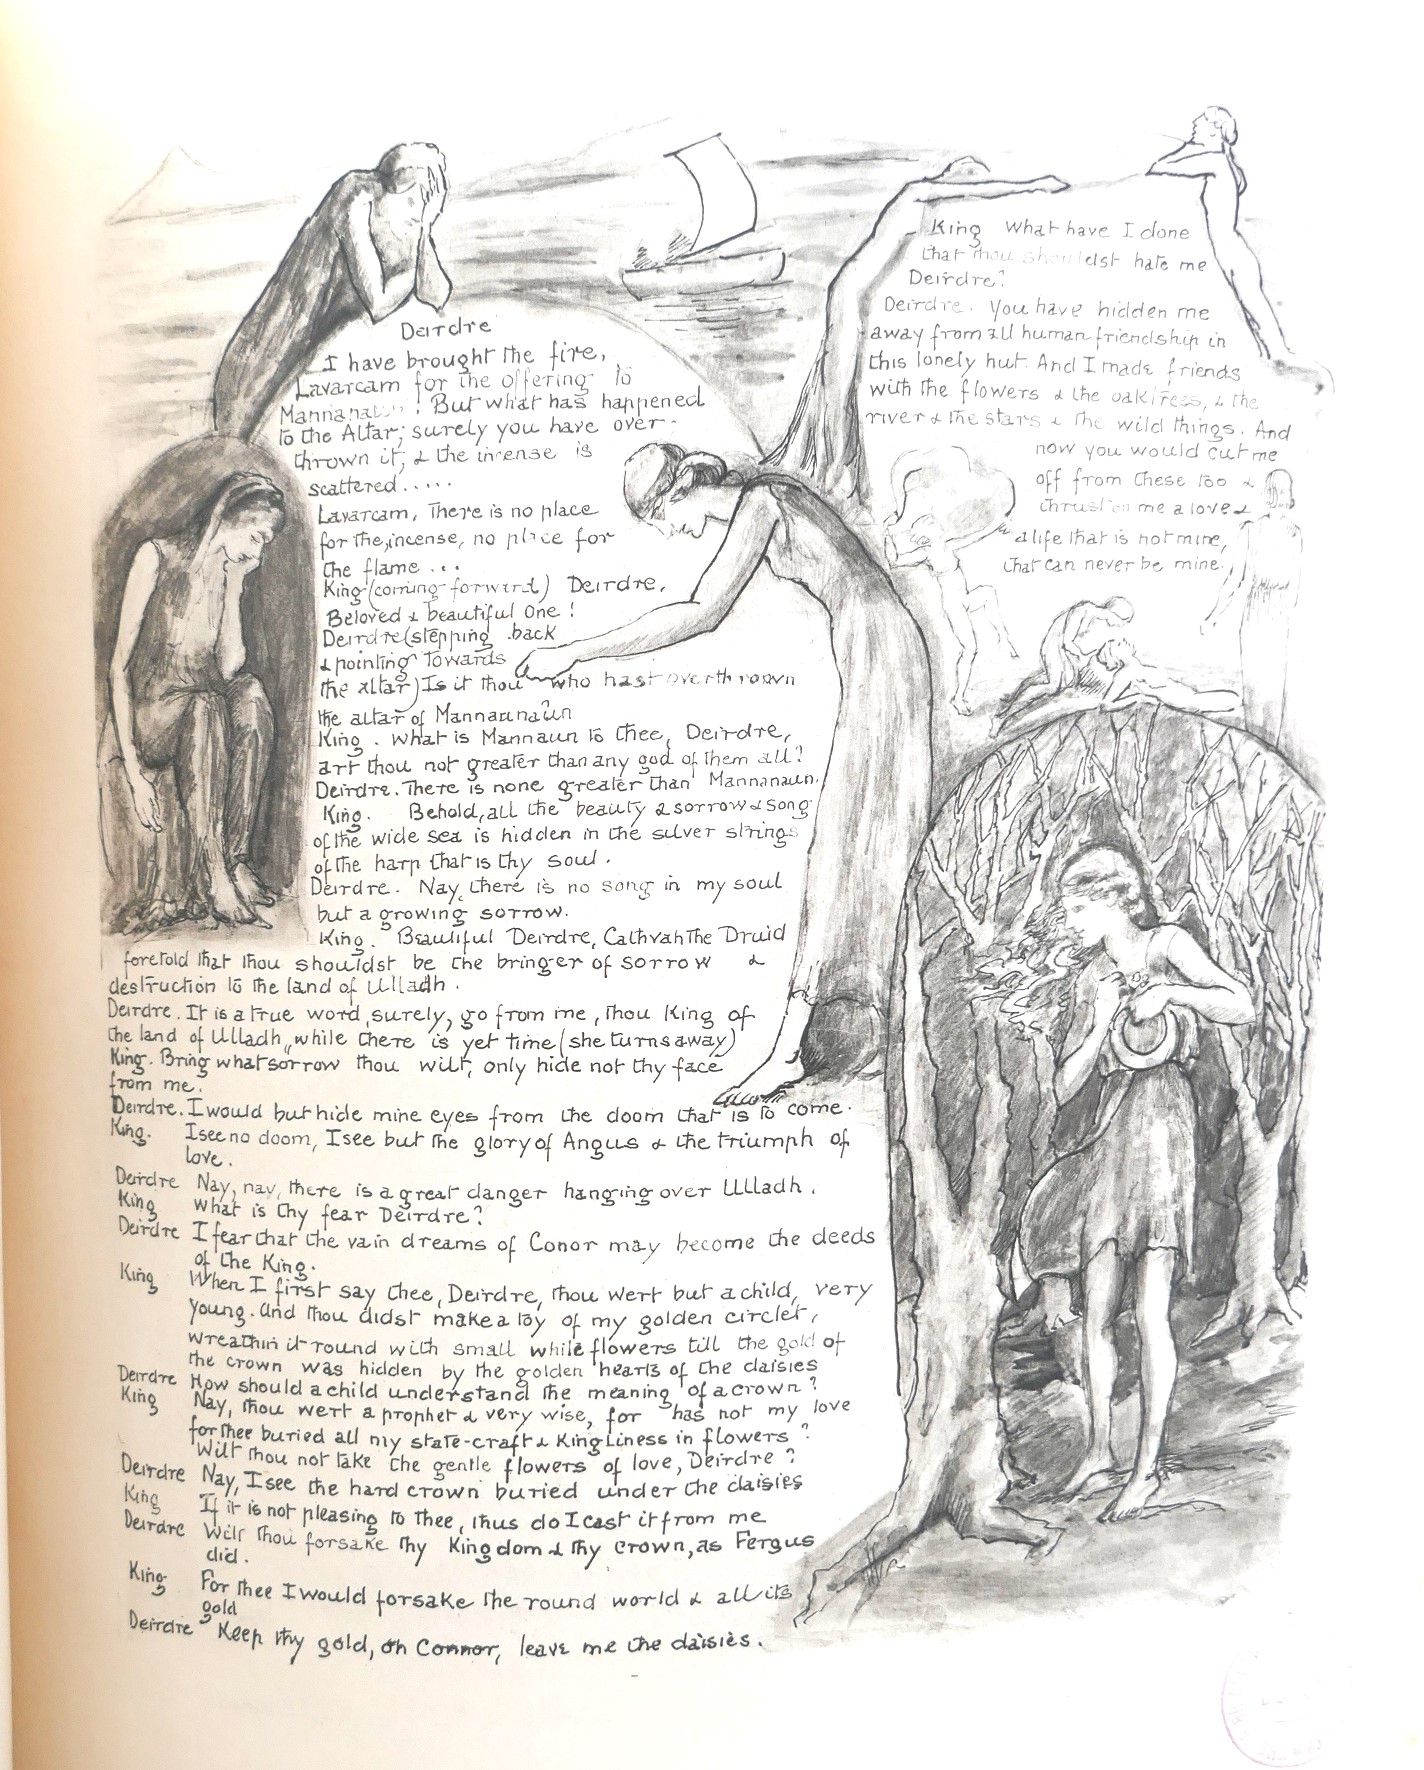 Deirdre
I have brought the fire,
Lavarcam for the offering to
Mannana ! But what has happened
to the Altar; surely you have over-
thrown it, & the incense is
scattered.....
Lavarcam, There is no place
for the incense, no place for
the flame ...
King (coming forward) Deirdre,
Beloved & beautiful One!
Deirdre (stepping back
& pointing Towards
the altar) Is it thou who hast overthrown
the altar of Mannaunaun
King. What is Mannaun to thee, Deirdre,
art thou not greater than any god of them all?
Deirdre. There is none greater than Mannanaun.
King. Behold, all the beauty & sorrow & song
of the wide sea is hidden in the silver strings
of the harp that is thy soul.
Deirdre. Nay, there is no song in my soul
but a growing sorrow.
King. Beautiful Deirdre, Cathvah The Druid
foretold that thou shouldst be the bringer of sorrow &
destruction to the land of Ulladh.
Deirdre. It is a true word, surely, go from me, thou King of
the land of Ulladh, while there is yet time (she turns away)
King. Bring what sorrow thou wilt, only hide not thy face
from me.
Deirdre. I would but hide mine eyes from the doom that is to come.
King. I see no doom, I see but the glory of Angus & the triumph of
love.
Deirdre Nay, nay, there is a great danger hanging over Ulladh.
King What is thy fear Deirdre?
Deirdre I fear that the vain dreams of Conor may become the deeds
of the King.
King When I first say thee, Deirdre, thou wert but a child, very
young. And thou didst make a toy of my golden circlet,
wreathin it round with small while flowers till the gold of
the crown was hidden by the golden hearts of the daisies
Deirdre How should a child understand the meaning of a crown?
King Nay, thou wert a prophet & very wise, for has not my love
for thee buried all my state-craft & KingLiness in flowers?
Wilt thou not take the gentle flowers of love, Deirdre?
Deirdre Nay, I see the hard crown buried under the daisies
King If it is not pleasing to thee, thus do I cast it from me
Deirdre Wilt thou forsake thy Kingdom & thy crown, as Fergus
did.
King For thee I would forsake the round world & all its
gold
Deirdre Keep thy gold, oh Connor, leave me the daisies.
King What have I done
that thou shouldst hate me
Deirdre?
Deirdre. You have hidden me
away from all human friendship in
this lonely hut. And I made friends
with the flowers & the oaktrees, & the
river & the stars & the wild things. And
now you would cut me
off from these too &
thrust on me a love &
a life that is not mine,
that can never be mine.